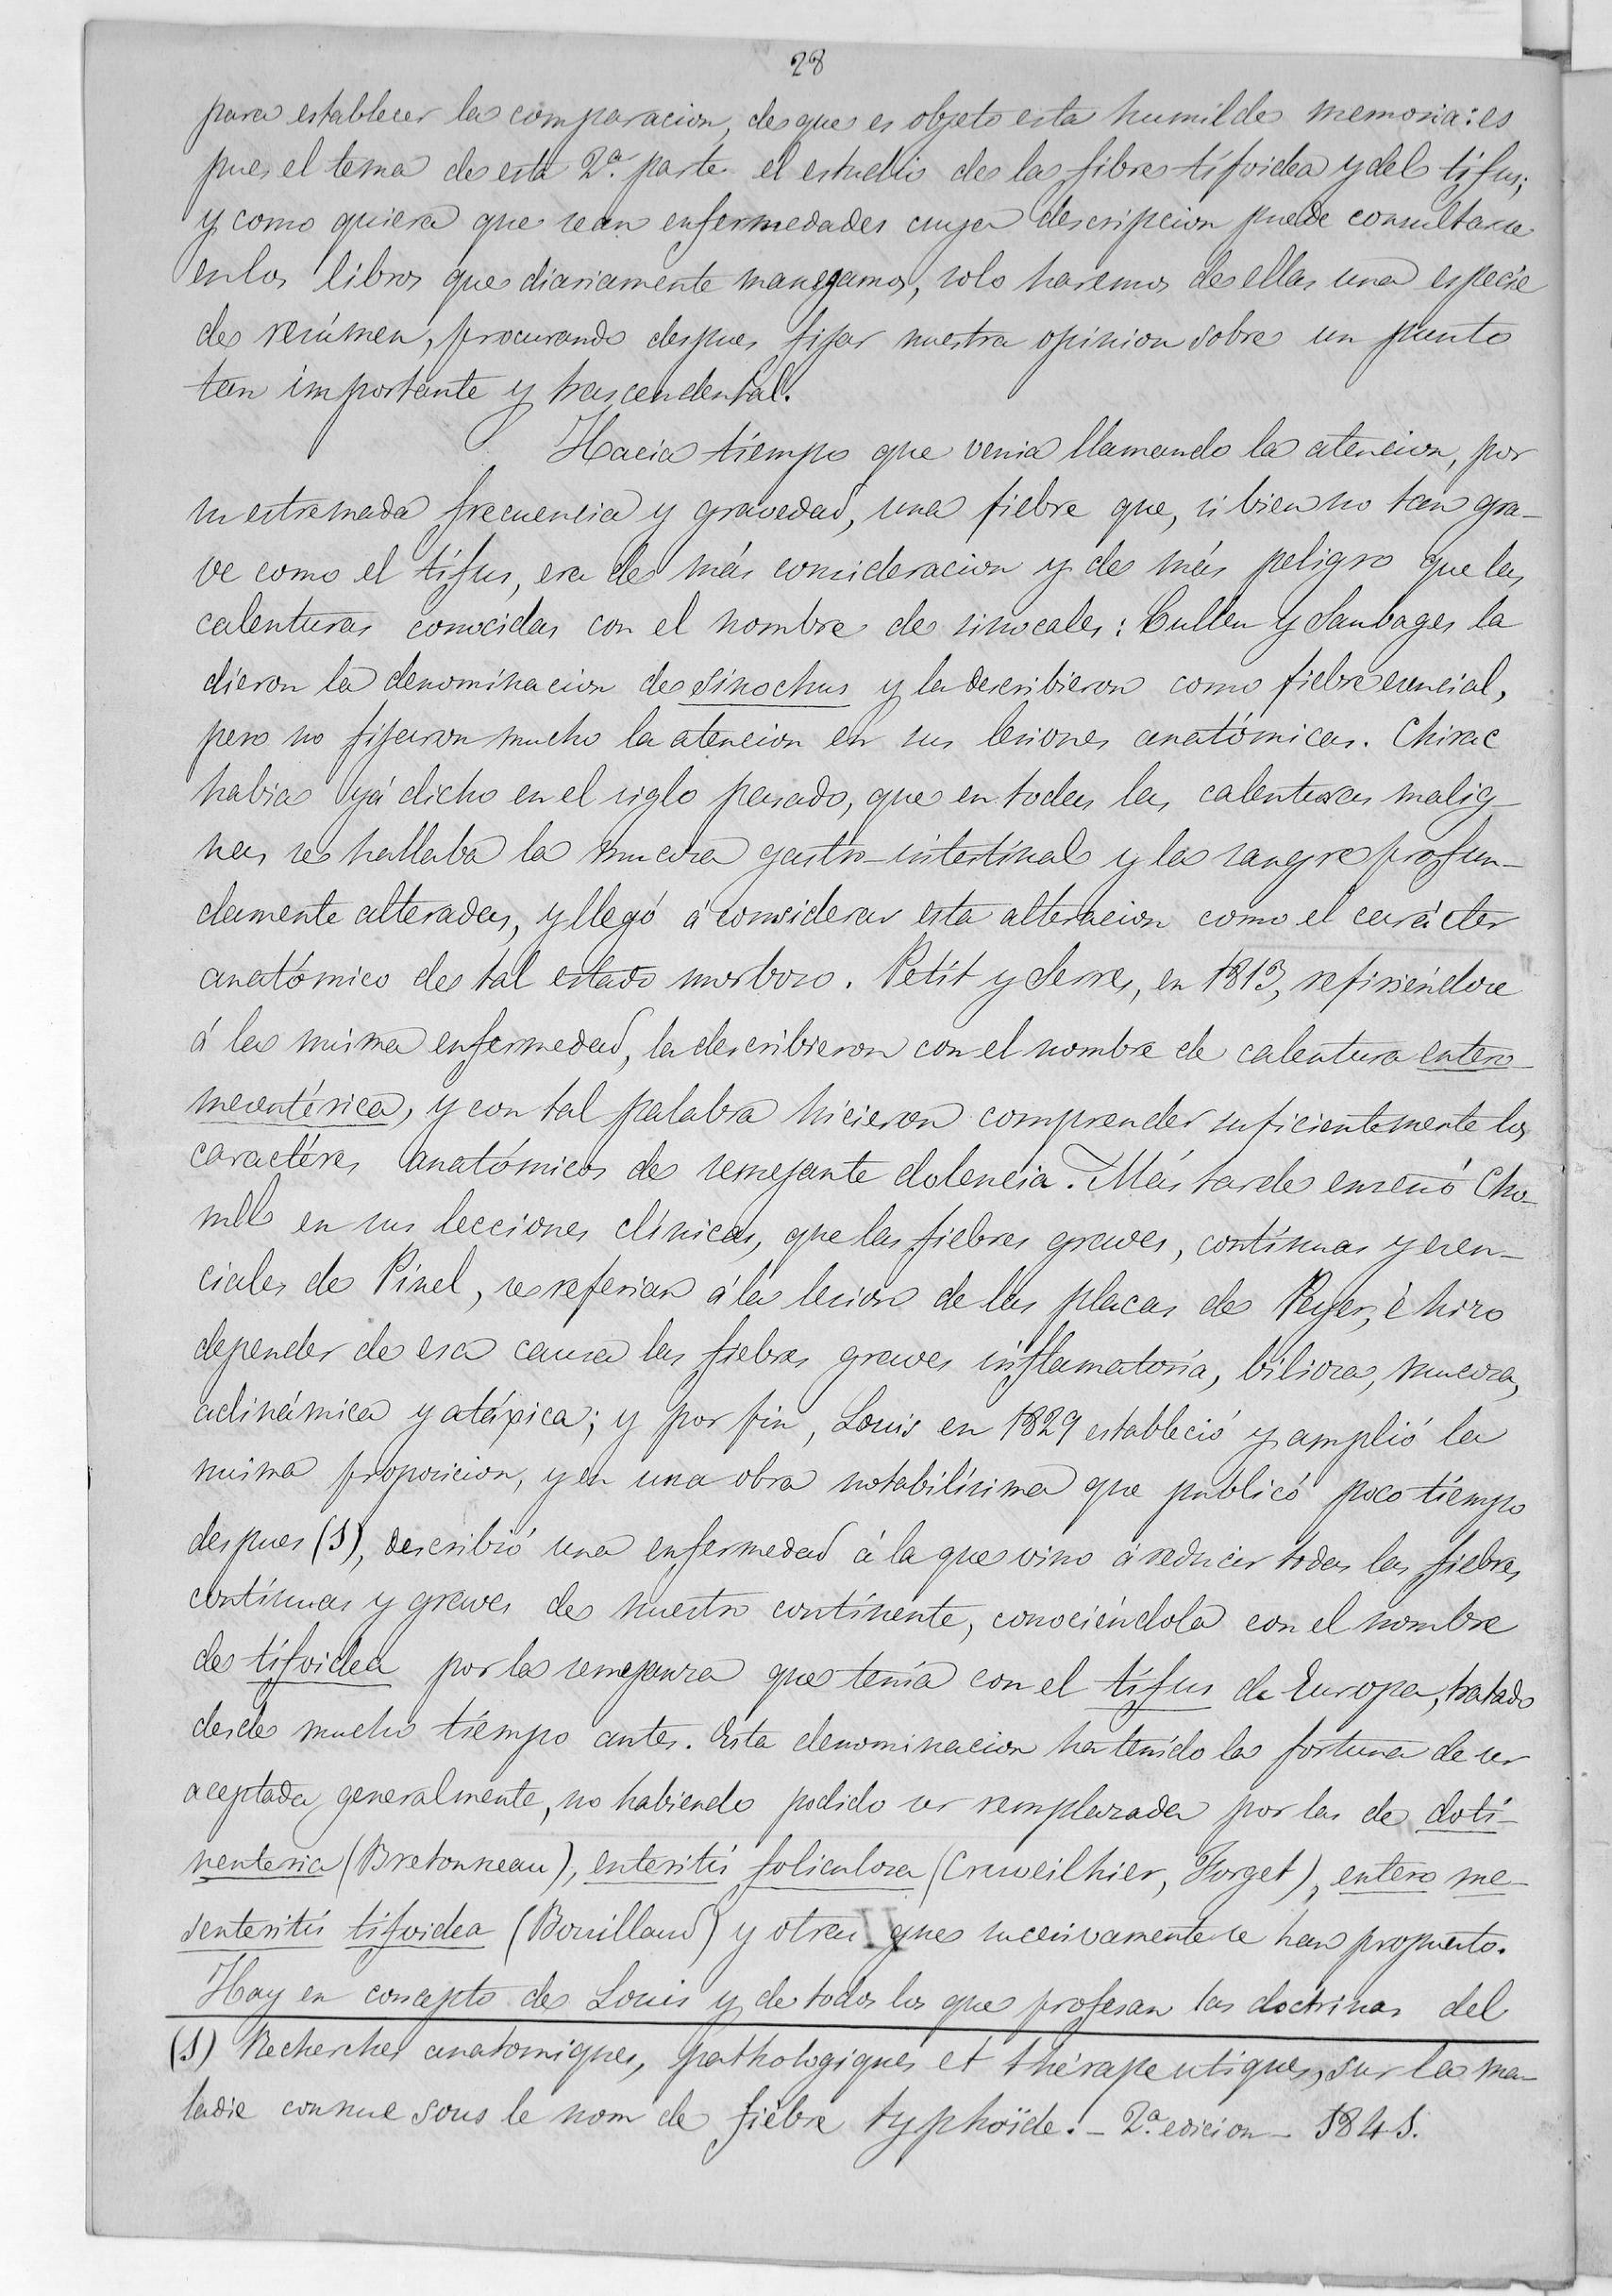 28
para establecer la comparacion, de que es objeto esta humilde memoria: es
pues el tema de esta 2.ª parte el estudio de la fibre tífoidea y del tífus;
y como quiera que sean enfermedades cuya descripcion puede consultarse
en los libros que diariamente manejamos, solo haremos de ellas una especie
de resúmen, procurando despues fijar nuestra opinion sobre un punto
tan importante y trascendental.
Hacia tiempo que venia llamando la atencion, por
su estremada frecuencia y gravedad, una fiebre que, si bien no tan gra-
ve como el tífus, era de más consideracion y de más peligro que las
calenturas conocidas con el nombre de sinocales: Cullen y Saubages la
dieron la denominacion de sinochus y la describieron como fiebre esencial,
pero no fijaron mucho la atencion en sus lesiones anatómicas. Chirac
habia yá dicho en el siglo pasado, que en todas las calenturas malig-
nas se hallaba la mucosa gastro-intestinal y la sangre profun-
damente alteradas, y llegó á considerar esta alteracion como el carácter
anatómico de tal estado morboso. Petit y Serres, en 1813, refiriéndose
á la misma enfermedad, la describieron con el nombre de calentura entero-
mesentérica, y con tal palabra hicieron comprender suficientemente los
caractéres anatómicos de semejante dolencia. Más tarde enseñó Cho-
mel en sus lecciones clínicas, que las fiebres graves, contínuas y esen-
ciales de Pinel, se referian á la lesion de las placas de Peyer, é hizo
depender de esa causa las fiebres graves inflamatoria, biliosa, mucosa,
adinámica y atáxica; y por fin, Louis en 1829 estableció y amplió la
misma proposicion, y en una obra notabilísima que publicó poco tiempo
despues (1), describió una enfermedad á la que vino á reducir todas las fiebres
contínuas y graves de nuestro continente, conociéndola con el nombre
de tífoidea por la semejanza que tenía con el tífus de Europa, tratado
desde mucho tiempo antes. Esta denominacion ha tenido la fortuna de ser
aceptada generalmente, no habiendo podido ser remplazada por las de doti-
nenteria (Bretonneau), enteritis foliculosa (Cruveilhier, Forget), entero me-
senteritis tifoidea (Bouillaud) y otras que sucesivamente se han propuesto.
Hay en concepto de Louis y de todos los que profesan las doctrinas del
(1) Recherches anatomiques, pathologiques et thérapeutiques, sur la ma-
ladie connue sous le nom de fiébre typhoïde. - 2.ª edicion - 1841.